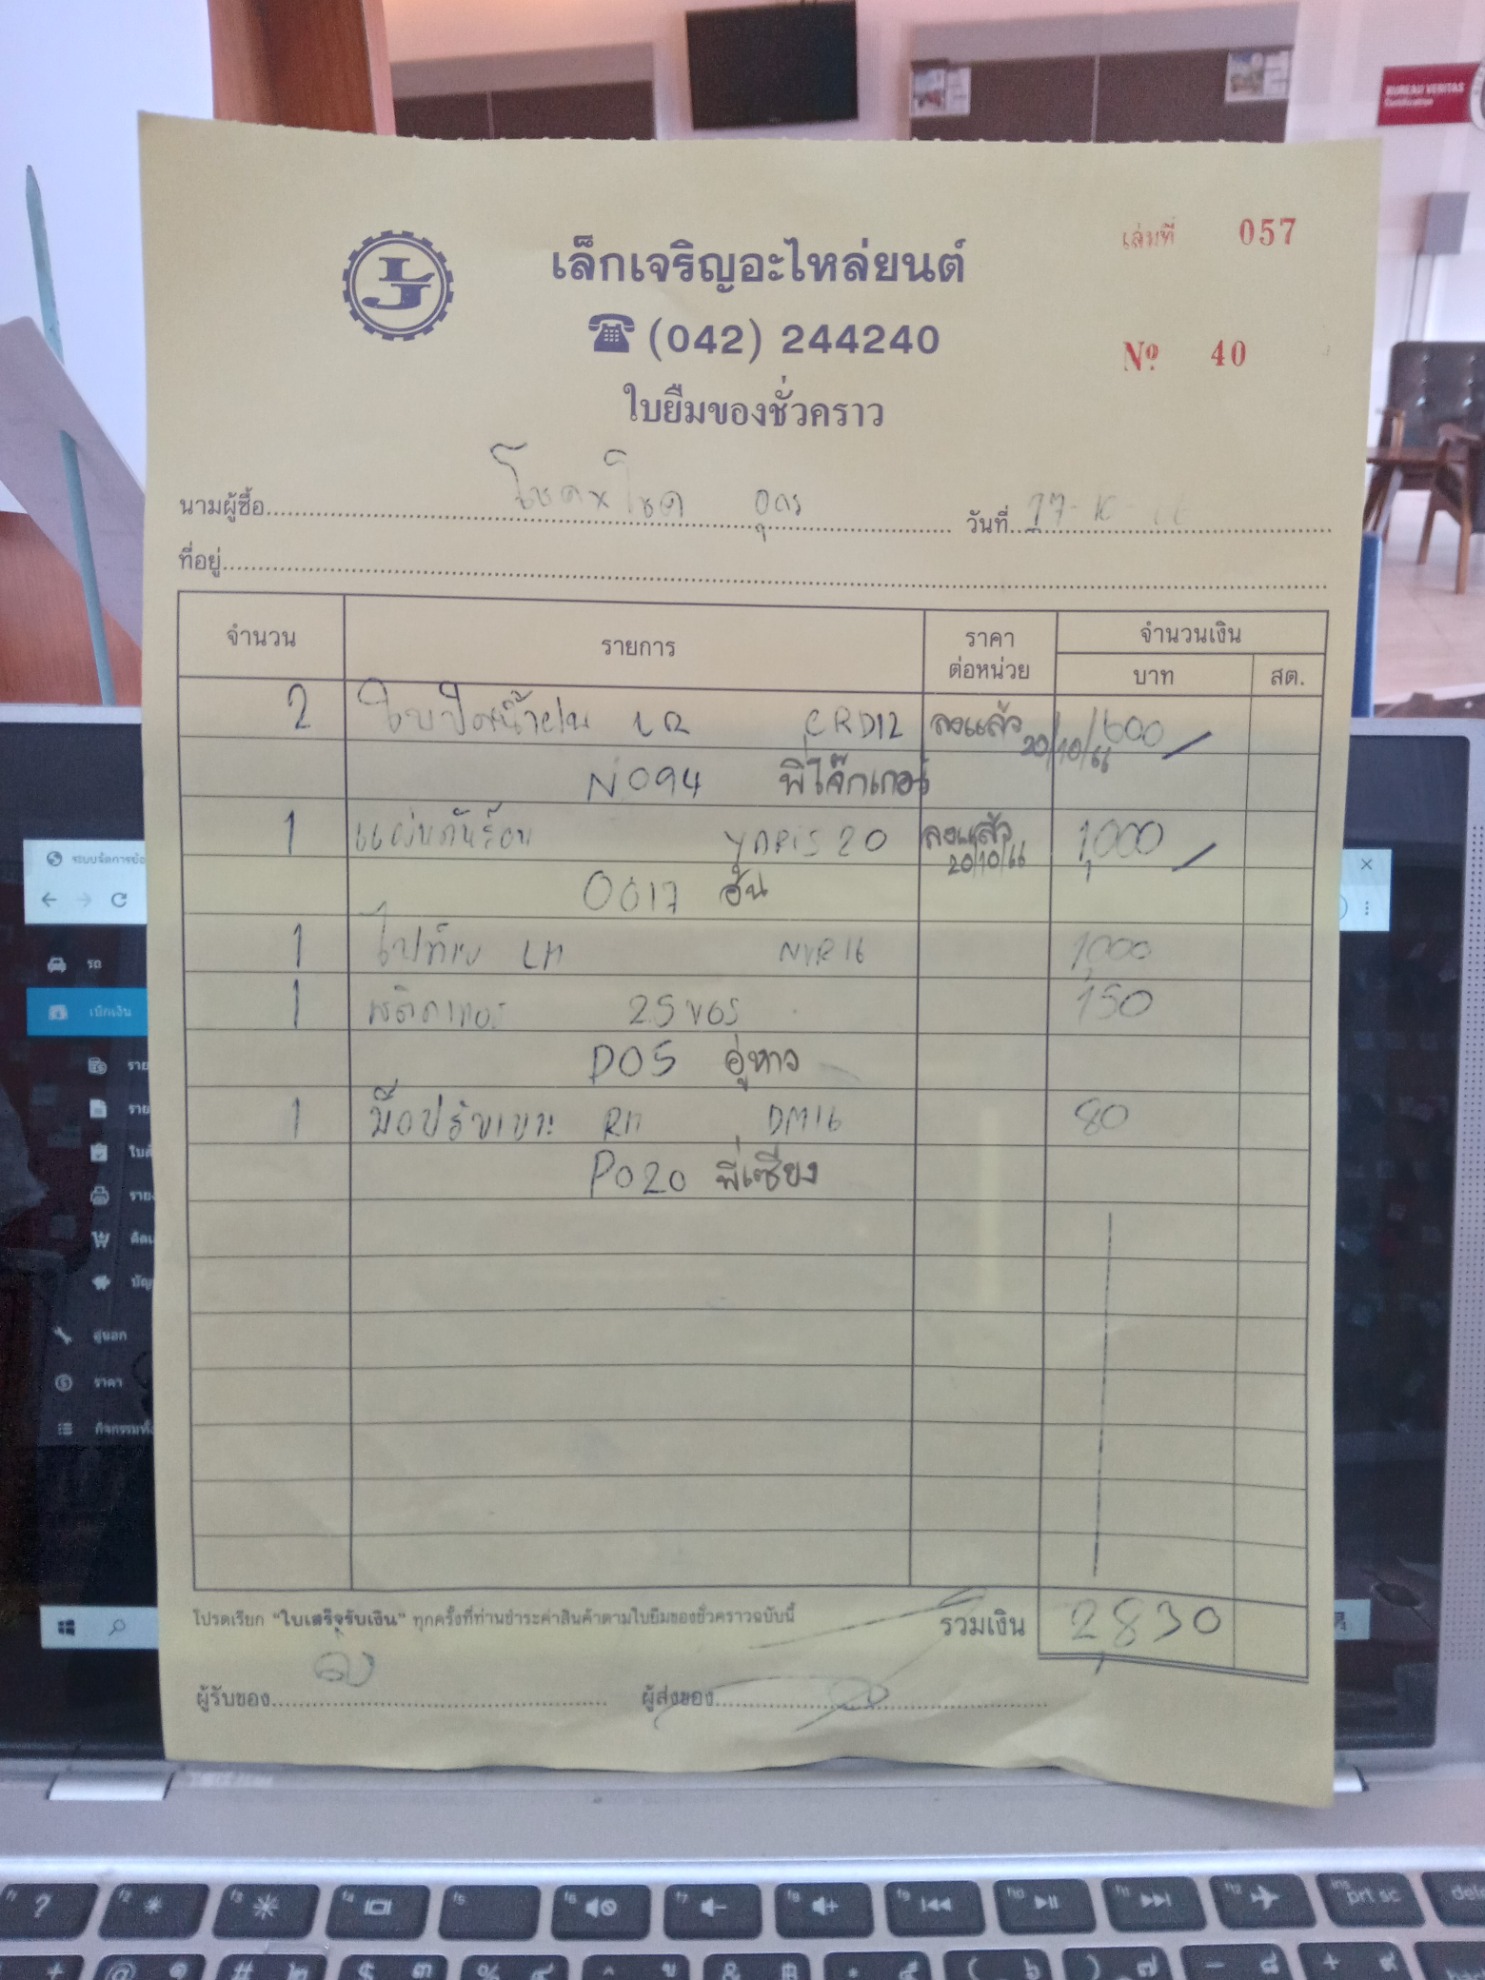 BUREAU VERITAS
Certification
เล่มที่ 057
เล็กเจริญอะไหล่ยนต์
(042) 244240
Nº 40
ใบยืมของชั่วคราว
นามผู้ซื้อ โชคxโชค อุดร วันที่ 17-10-
ที่อยู่
จำนวน รายการ ราคาต่อหน่วย จำนวนเงิน
บาท สต.
2 ใบปัดน้ำฝน LR CRD12 ลงแล้ว 20/10/66 600
N094 พี่โจ๊กเกอร์
1 แผ่นกันร้อน YARIS 20 ลงแล้ว 20/10/66 1,000
0017 อั้น
1 ไฟท้าย LH NVR16 1,000
1 พลาดเทอร์ 25 150
D05 อู่หาว
1 RH DM16 80
P020 พี่เซียง
โปรดเรียก "ใบเสร็จรับเงิน" ทุกครั้งที่ท่านชำระค่าสินค้าตามใบยืมของชั่วคราวฉบับนี้ รวมเงิน 2,830
ผู้รับของ ผู้ส่งของ
รถ
เบิกเงิน
ราย
ราย
ราย
อู่นอก
ราคา
prt sc